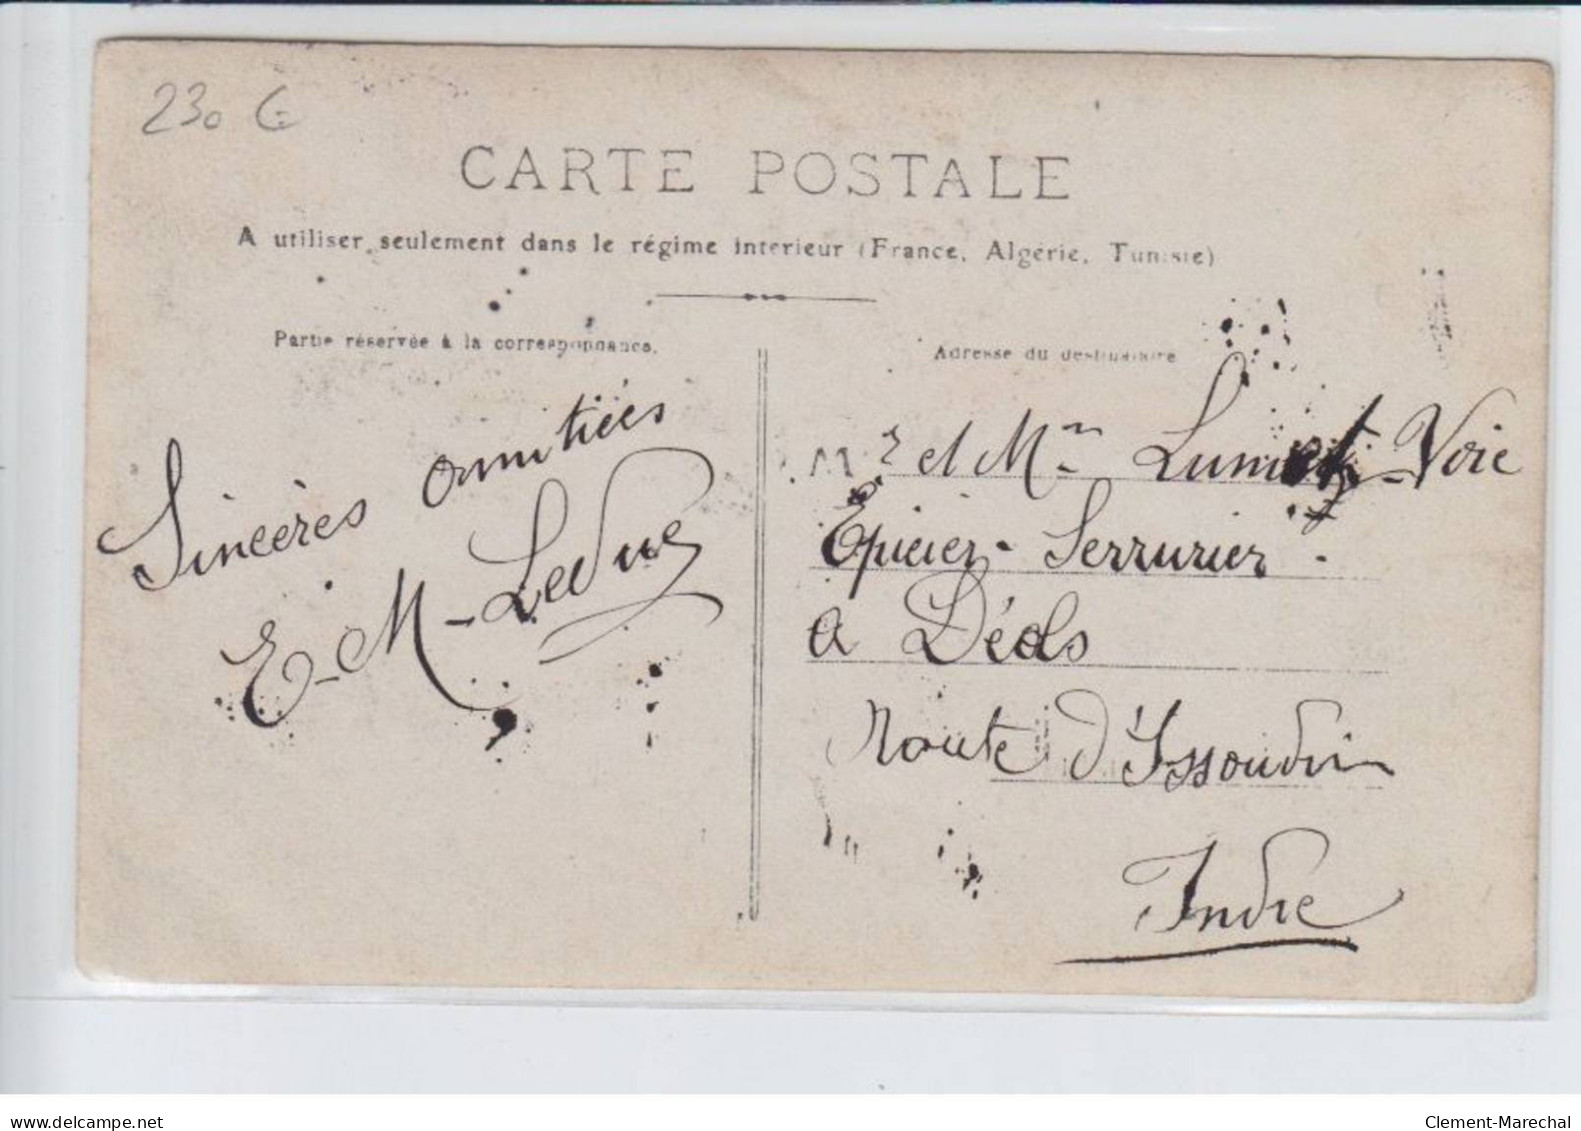 230 G
CARTE POSTALE
A utiliser seulement dans le régime interieur (France, Algérie, Tunisie)
Partie réservée à la correspondance.
Adresse du destinataire
Sincères amitiées
E-M-Leduc
Mr et Mm Lumet-Voie
Epicier-Serrurier-
a Déols
Route d'Issoudun
Indre
www.delcampe.net
Clement-Marechal